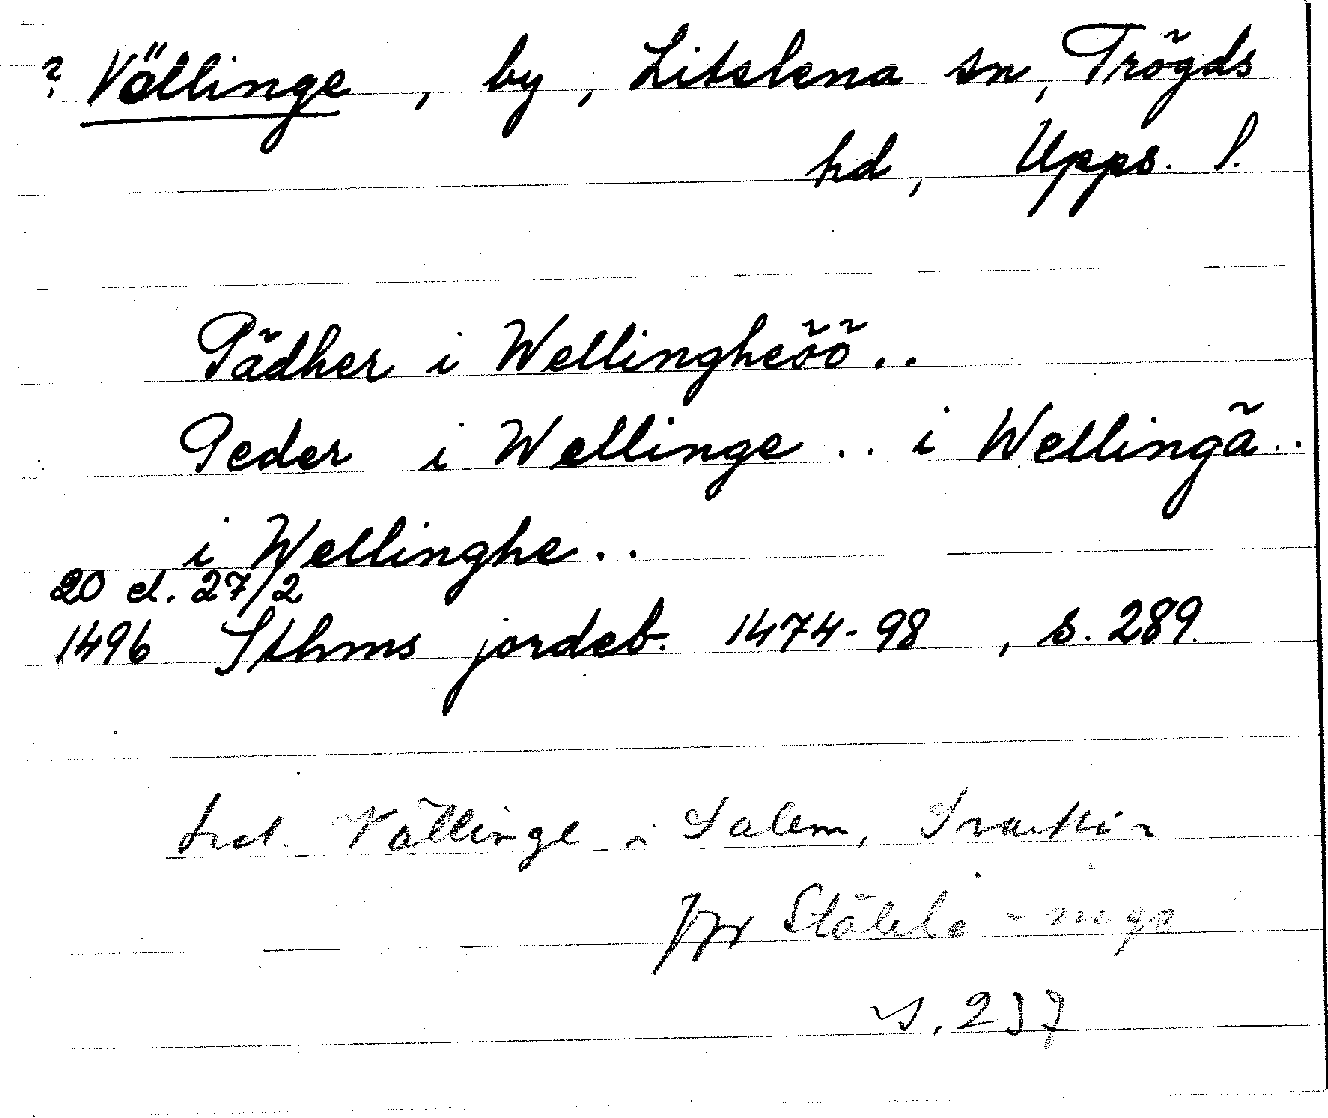 ? Vällinge, by, Litslena sn, Trögds
hd, Upps. l.
Pädher i Wellingheöö..
Peder i Wellinge .. i Wellingä..
i Wellinghe..
20 el. 27/2
1496 Sthms jordeb. 1474-98, s. 289.
Vällinge i Salem,
s. 237